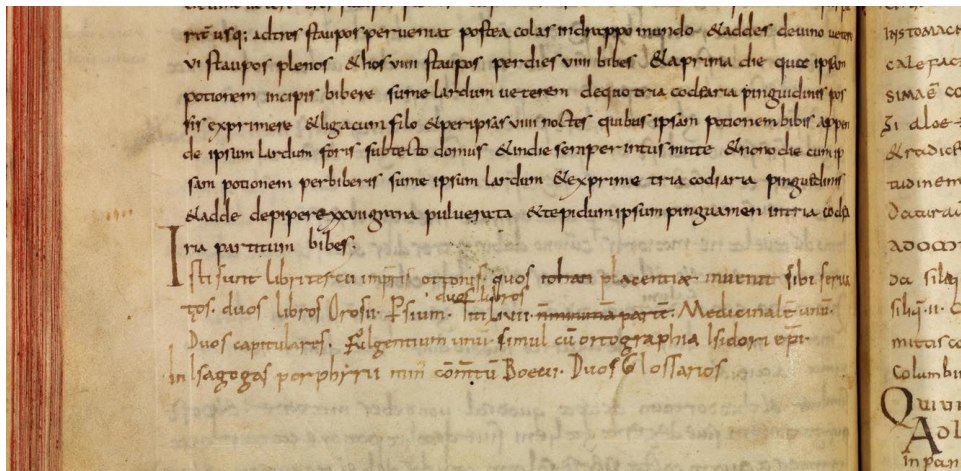 rit usq; ad tres staupos perveniat postea colas in drappo mundo &addes de vino veteri
vi staupos plenos &hos viiii staupos per dies viiii bibes &a prima die quo ipsam
potionem incipis bibere sume lardum veterem de quo tria codiaria pinguidinis pos
sis exprimere &liga cum filo &per ipsas viiii noctes quibus ipsam potionem bibis appen
de ipsum lardum foris subtecto domus &in die semper intus mitte &nono die cum ip
sam potionem perbiberis sume ipsum lardum &exprime tria codiaria pinguidinis
&adde de piper xxviii grana pulverata &tepidum ipsum pinguamen in tria codia
ria partitum bibes.
Isti sunt libri tercii imp̄ris ottonis quos iohan placentiae invenit sibi serua
tos. duos libros Orosii. Persium. Titi Livii duos libros Medicinalē unū.
Duos capitulares. Fulgentium unū. simul cū ortographia Isidori epī.
In Isagogas porphyrii Boetii. Duos Glossarios
INSTOMACH
CALEFAC
& radic
tudinem
Daturad
mittis co
Columbin
Qui
in pan